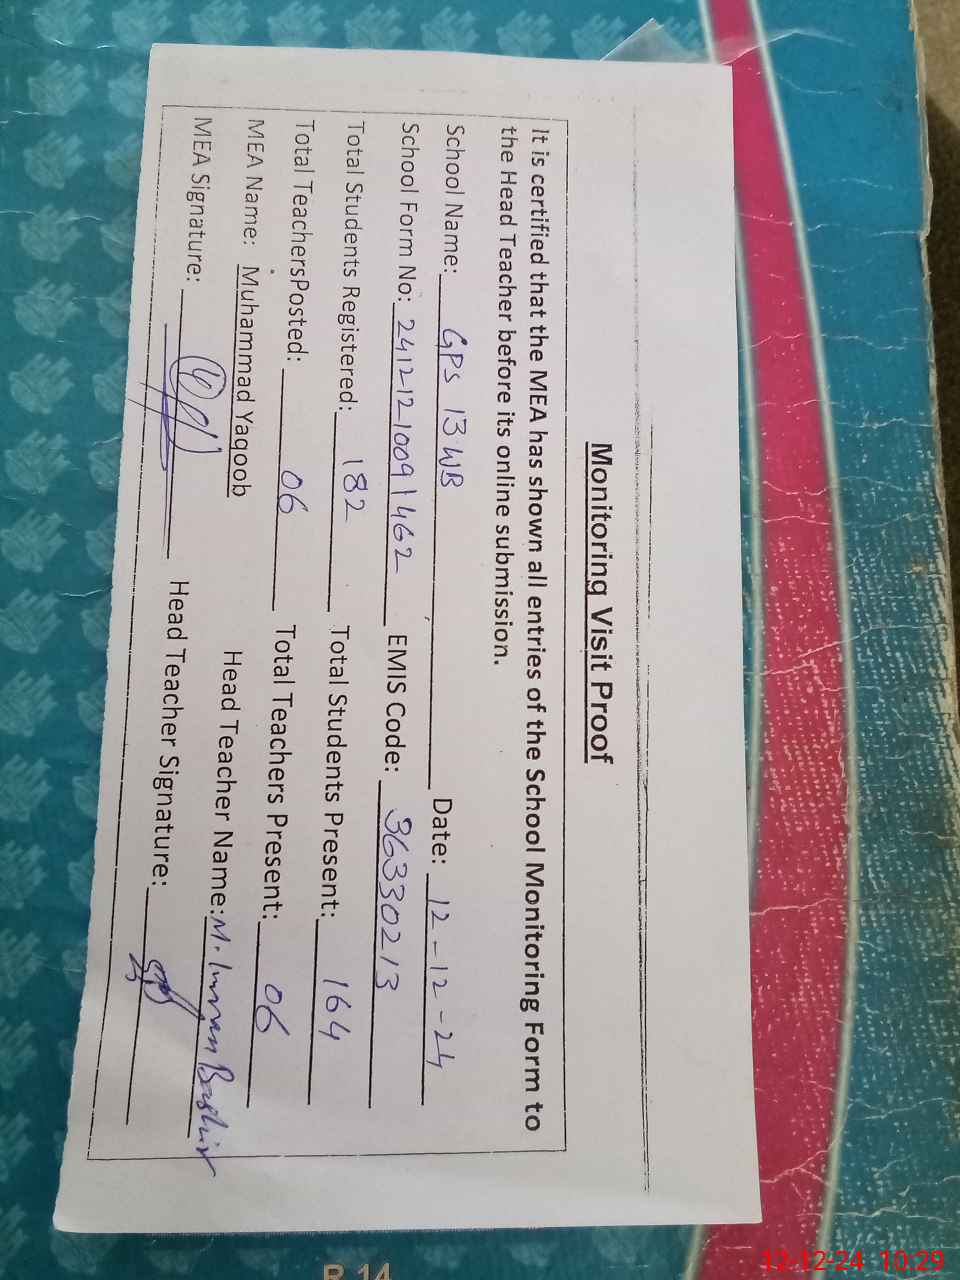 Monitoring Visit Proof
It is certified that the MEA has shown all entries of the School Monitoring Form to
the Head Teacher before its online submission.
School Name: GPS 13 WB Date: 12-12-24
School Form No: 24121210091462 EMIS Code: 36330213
Total Students Registered: 182 Total Students Present: 164
Total TeachersPosted: 06 Total Teachers Present: 06
MEA Name: Muhammad Yaqoob Head Teacher Name: M. Imran Bashir
MEA Signature: Head Teacher Signature:
P 14
12-12-24 10:29